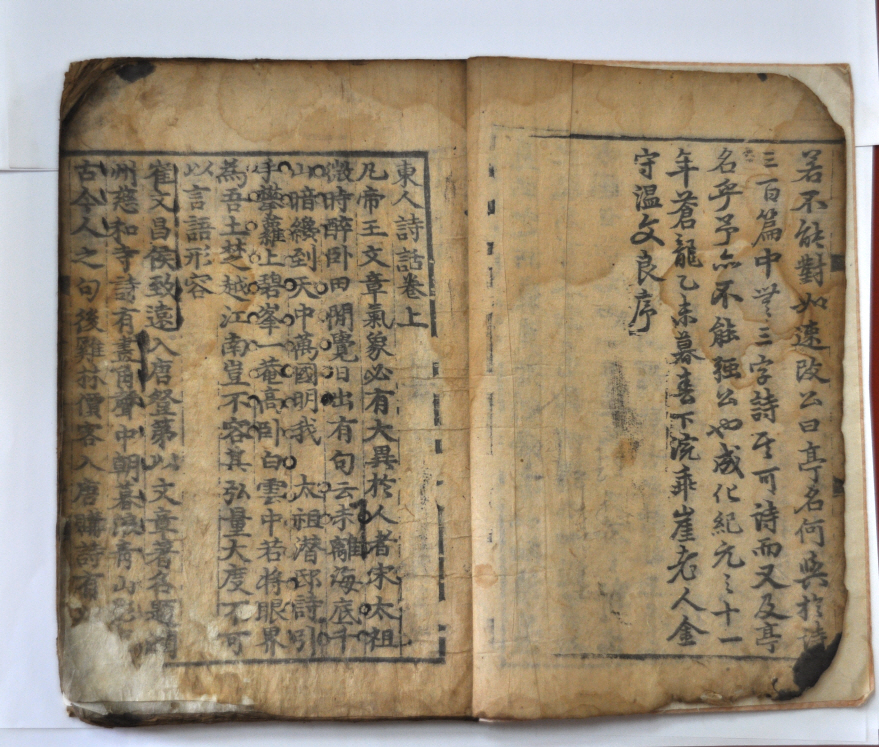 若不能對如速改公曰亭名何與於詩
三百篇中無三字詩其可詩而又及亭
名乎予亦不能强公也成化紀元之十一
年蒼龍乙未暮春下浣乖崖老人金
守溫文良序
東人詩話卷上
凡帝王文章氣象必有大異於人者宋太祖
微時醉卧田間覺日出有句云未離海底千
山暗纔到天中萬國明我 太祖潛邸詩引
手攀蘿上碧峯一菴高卧白雲中若將眼界
為吾土楚越江南豈不容其弘量大度不可
以言語形容
崔文昌侯致遠入唐登第以文章著名題潤
州慈和寺詩有畫角聲中朝暮浪青山影
古今人之句後雞林價客入唐購詩有